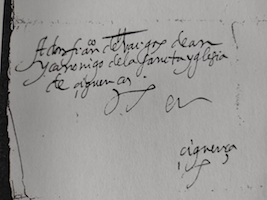 A don fran.co de [...] dean
y canonigo de la sancta yglesia
de çiguença
en
çiguença